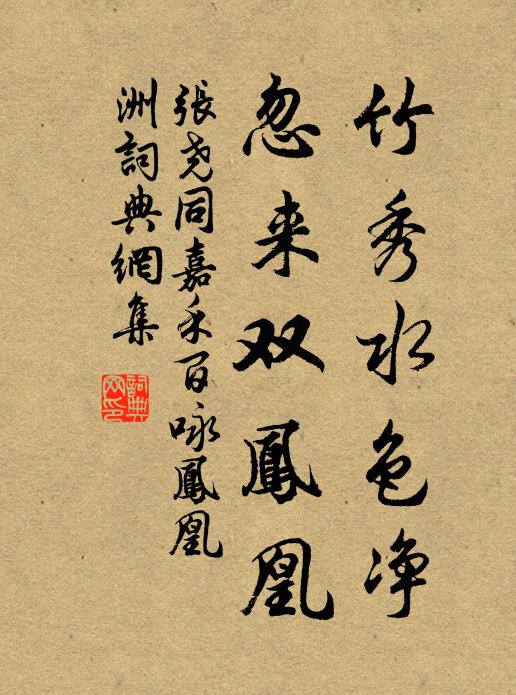 竹秀水色净
忽来双鳳凰
張尧同嘉禾百咏鳳凰
洲詞典網集
詞典網印